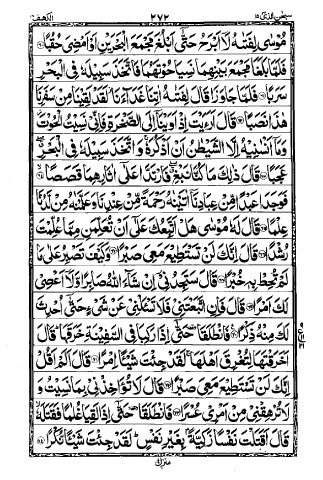 سبحن الذی ۱۵ ۲۷۲ الکهف ۱۸
مُوْسٰى لِفَتٰىهُ لَاۤ اَبْرَحُ حَتّٰۤى اَبْلُغَ مَجْمَعَ الْبَحْرَيْنِ اَوْ اَمْضِيَ حُقُبًا ۝۶۰
فَلَمَّا بَلَغَا مَجْمَعَ بَيْنِهِمَا نَسِيَا حُوْتَهُمَا فَاتَّخَذَ سَبِيْلَهٗ فِي الْبَحْرِ
سَرَبًا ۝۶۱ فَلَمَّا جَاوَزَا قَالَ لِفَتٰىهُ اٰتِنَا غَدَآءَنَا ؗ لَقَدْ لَقِيْنَا مِنْ سَفَرِنَا
هٰذَا نَصَبًا ۝۶۲ قَالَ اَرَءَيْتَ اِذْ اَوَيْنَاۤ اِلَى الصَّخْرَةِ فَاِنِّيْ نَسِيْتُ الْحُوْتَ ؗ
وَمَاۤ اَنْسٰىنِيْهُ اِلَّا الشَّيْطٰنُ اَنْ اَذْكُرَهٗ ۚ وَاتَّخَذَ سَبِيْلَهٗ فِي الْبَحْرِ ۖۗ
عَجَبًا ۝۶۳ قَالَ ذٰلِكَ مَا كُنَّا نَبْغِ ۖۗ فَارْتَدَّا عَلٰۤى اٰثَارِهِمَا قَصَصًا ۝۶۴
فَوَجَدَا عَبْدًا مِّنْ عِبَادِنَاۤ اٰتَيْنٰهُ رَحْمَةً مِّنْ عِنْدِنَا وَعَلَّمْنٰهُ مِنْ لَّدُنَّا
عِلْمًا ۝۶۵ قَالَ لَهٗ مُوْسٰى هَلْ اَتَّبِعُكَ عَلٰۤى اَنْ تُعَلِّمَنِ مِمَّا عُلِّمْتَ
رُشْدًا ۝۶۶ قَالَ اِنَّكَ لَنْ تَسْتَطِيْعَ مَعِيَ صَبْرًا ۝۶۷ وَكَيْفَ تَصْبِرُ عَلٰى مَا
لَمْ تُحِطْ بِهٖ خُبْرًا ۝۶۸ قَالَ سَتَجِدُنِيْۤ اِنْ شَآءَ اللّٰهُ صَابِرًا وَّلَاۤ اَعْصِيْ
لَكَ اَمْرًا ۝۶۹ قَالَ فَاِنِ اتَّبَعْتَنِيْ فَلَا تَسْـَٔلْنِيْ عَنْ شَيْءٍ حَتّٰۤى اُحْدِثَ
لَكَ مِنْهُ ذِكْرًا ۝۷۰ فَانْطَلَقَا ۥ حَتّٰۤى اِذَا رَكِبَا فِي السَّفِيْنَةِ خَرَقَهَا ؕ قَالَ
اَخَرَقْتَهَا لِتُغْرِقَ اَهْلَهَا ۚ لَقَدْ جِئْتَ شَيْـًٔا اِمْرًا ۝۷۱ قَالَ اَلَمْ اَقُلْ
اِنَّكَ لَنْ تَسْتَطِيْعَ مَعِيَ صَبْرًا ۝۷۲ قَالَ لَا تُؤَاخِذْنِيْ بِمَا نَسِيْتُ وَ
لَا تُرْهِقْنِيْ مِنْ اَمْرِيْ عُسْرًا ۝۷۳ فَانْطَلَقَا ۥ حَتّٰۤى اِذَا لَقِيَا غُلٰمًا فَقَتَلَهٗ ۙ
قَالَ اَقَتَلْتَ نَفْسًا زَكِيَّةًۢ بِغَيْرِ نَفْسٍ ؕ لَقَدْ جِئْتَ شَيْـًٔا نُّكْرًا ۝۷۴